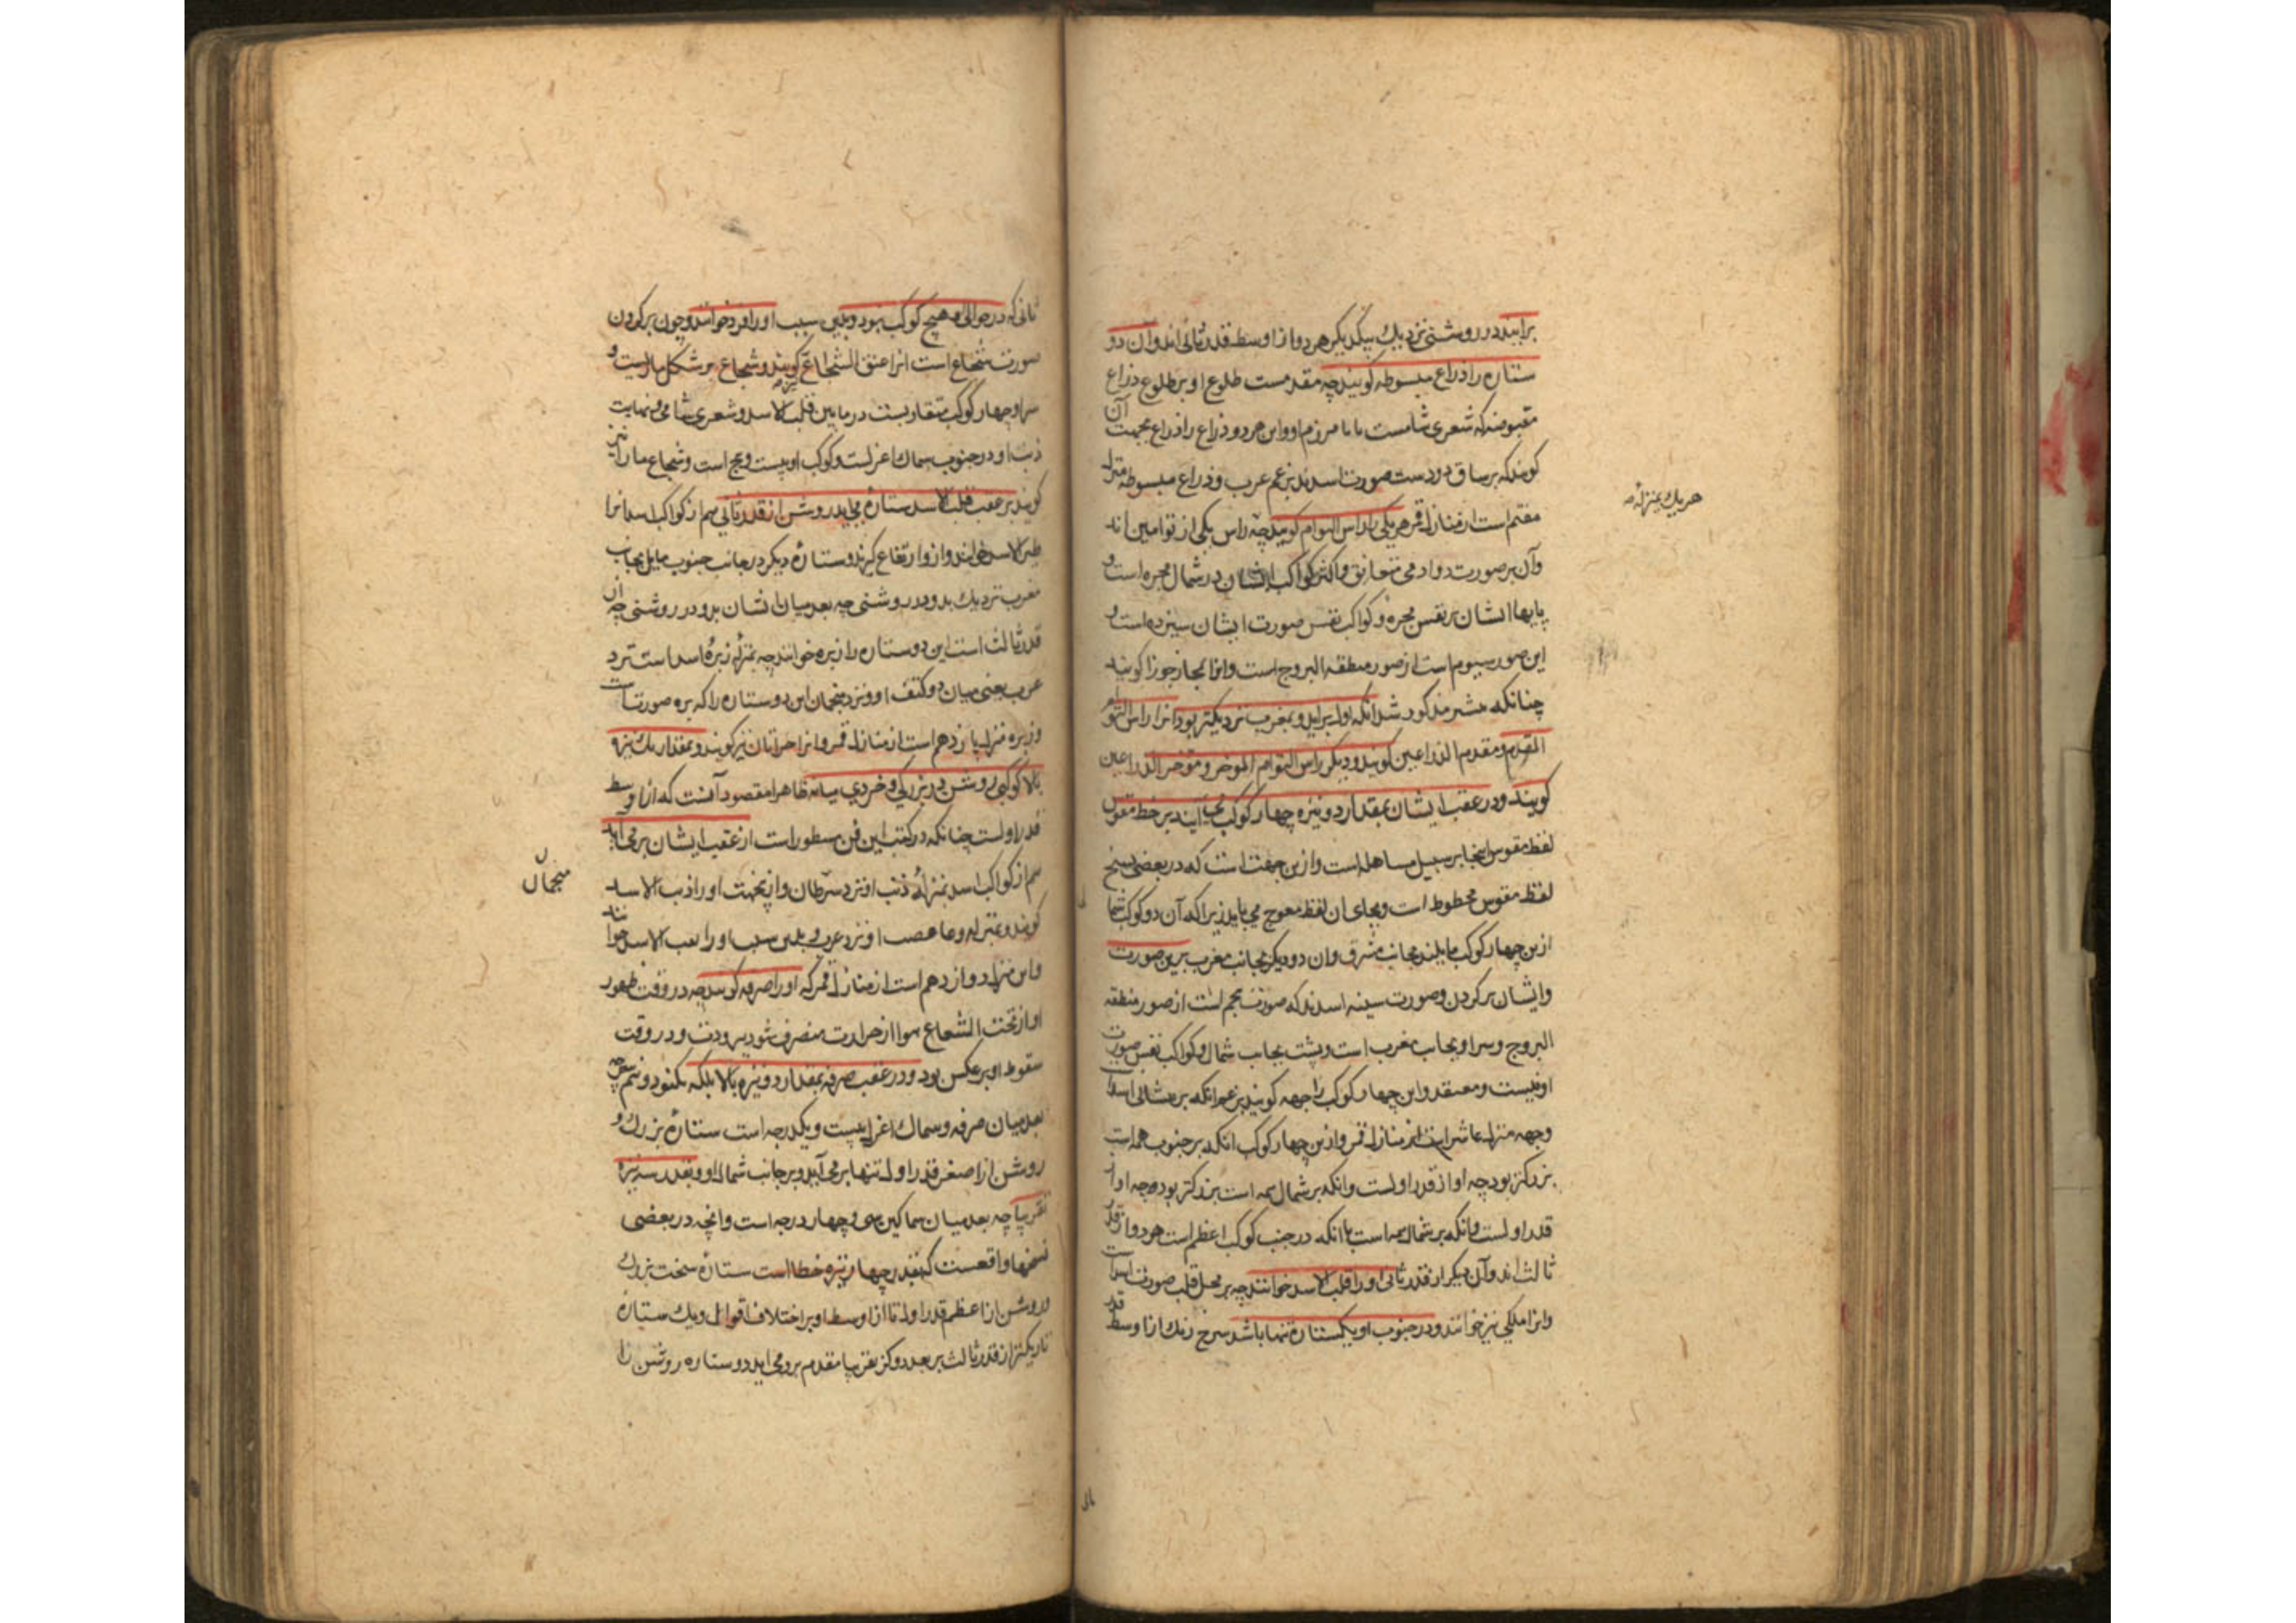 برایند در روشنی نزدیك بیکدیکر هر دو از اوسط قدر ثانی اند و آن دو
ستاره را ذراع مبسوطه کویند چه مقدمست طلوع او بر طلوع ذراع
مقبوضه که شعری شامیست با مرزم او و این هر دو ذراع را ذراع بجهت آن
کویند که بر ساق دو دست صورت اسدند بزعم عرب و ذراع مبسوطه منزل
هفتم است از منازل قمر هر یکی را راس التوام کویند چه راس یکی از توامین اند
وآن بر صورت دو ادمی متعانق و اکثر کواکب ایشان در شمال مجره است و
پایها ایشان بر نفس مجره و کواکب نفس صورت ایشان سیزده است و
این صورت سیوم است از صور منطقه البروج است و انرا بمجاز جوزا کویند
چنانکه مذکور شد انکه اول براید و بمغرب نزدیکتر بود انرا راس التوام
المقدم و مقدم الذراعین کویند و دیکر راس التوام الموخر و موخر الذراعین
کویند و در عقب ایشان بمقدار دو نیزه چهار کوکب می آیند بر خط مقوس
لفظ مقوس اینجا بر سبیل مساهله است و ازین جهت است که در بعضی نسخ
لفظ مقوس مخطوط است و بجای ان لفظ معوج می باید زیرا که آن دو کوکب
ازین چهار کوکب مایلند بجانب مشرق و ان دو دیکر بجانب مغرب برین صورت
و ایشان بر کردن و صورت سینه اسدند که صورت پنجم است از صور منطقه
البروج و سر او بجانب مغرب است و پشت بجانب شمال و کواکب نفس صورت
او بیست و هفتند و این چهار کوکب را جبهه کویند برعم انکه بر پیشانی اسد
و جبهه منزل عاشر است از منازل قمر و ازین چهار کوکب انکه بر جنوب همه است
بزرکتر بود چه او از قدر اولست و انکه بر شمال همه است
قدر اولست و انکه بر شمال همه است با انکه در جنب کوکب اعظم است هر دو از قدر
ثالث اند وآن دیکر از قدر ثانی او را قلب الاسد خوانند چه بر محل قلب صورت اسد است
و انرا ملکی نیز خوانند و در جنوب او یکستاره تنها باشد سرخ رنك از اوسط قدر
هر یك بمنزله
ثانی که در حوالی او هیچ کوکب نبود و بدین سبب او را فرد خوانند و چون بر کردن
صورت شجاع است انرا عنق الشجاع کویند و شجاع بر شکل ماریست و
سر او چهار کوکب متقاربست در مابین قلب الاسد و شعری شامی و نهایت
ذنب او در جنوب سماك اعزلست و کوکب او بیست و پنج است و شجاع مار را نیز
کویند بر عقب قلب الاسد ستاره می اید روشن از قدر ثانی هم از کواکب اسد انرا
ظهر الاسد خوانند و از او ارتفاع کیرند و ستاره دیکر در جانب جنوب مایل بجانب
مغرب نزدیك بدو در روشنی چه بعد میان ایشان بدو در روشنی چه ان
قدر ثالث است این دو ستاره را زبره خوانند چه بمنزله زبره اسد است نزد
عرب یعنی میان دو کتف او و نزد منجمان این دو ستاره را که بره صورت است
و زبره منزل یازدهم است از منازل قمر و انرا خراتان نیز کویند و بمقدار یك نیزه
بالا کوکبی روشن در بزرکی و خردی میانه ظاهرا مقصود آنست که از اوسط
قدر اولست چنانکه در کتب این فن مسطور است از عقب ایشان بر می آید
هم از کواکب اسد بمنزله ذنب او نزد سرطان و ازینجهت او را ذنب الاسد
کویند و بمنزله وعا قضیب او نزد عرب و بدین سبب او را قنب الاسد خوانند
و این منزل دوازدهم است از منازل قمر که او را صرفه کویند چه در وقت ظهور
او از تحت الشعاع هوا از حرارت منصرف شود ببرودت و در وقت
سقوط او بر عکس بود و در عقب صرفه بمقدار دو نیزه بالا بلکه
بعد میان صرفه و سماك اعزل بیست و یکدرجه است ستاره بزرك و
روشن از اصغر قدر اول تنها بر می آید و بر جانب شمال او و بقدر سه نیزه
تقریبا چه بعد میان سماکین سی و چهار درجه است و انچه در بعضی
نسخها واقعست که بقدر چهار نیزه خطا است ستاره سخت بزرك
و روشن از اعظم قدر اول تا از اوسط او بر اختلاف اقوال و یك ستاره
تاریکتر از قدر ثالث بر بعد دو کز تقریبا مقدم برو می اید دو ستاره روشن را
منجمان